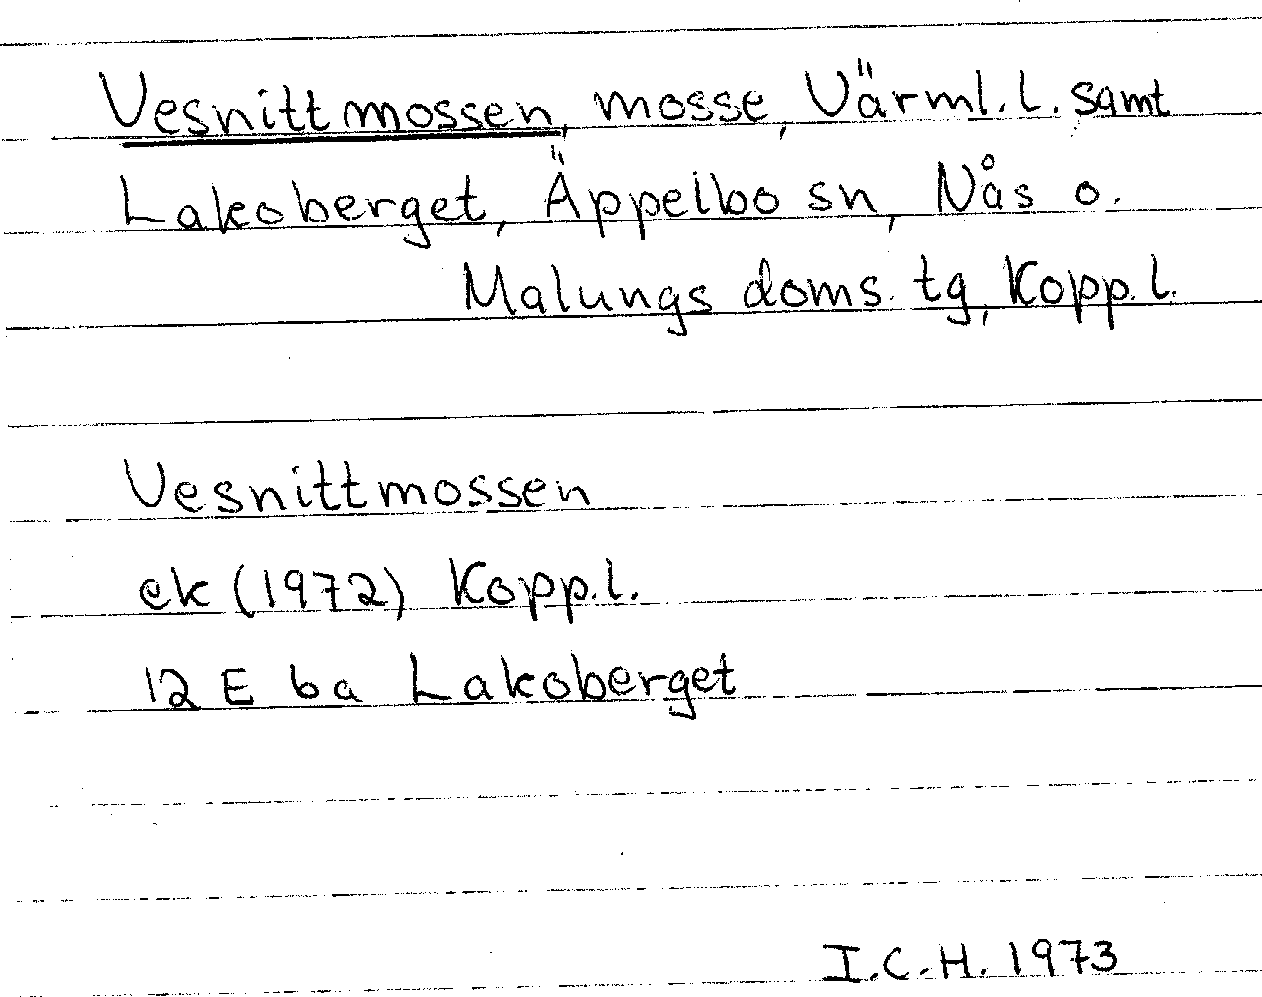 Vesnittmossen, mosse, Värml. l. samt
Lakoberget, Äppelbo sn, Nås o.
Malungs doms. tg, Kopp. l.
Vesnittmossen
ek (1972) Kopp. l.
12 E 6a Lakoberget
I.C.H. 1973